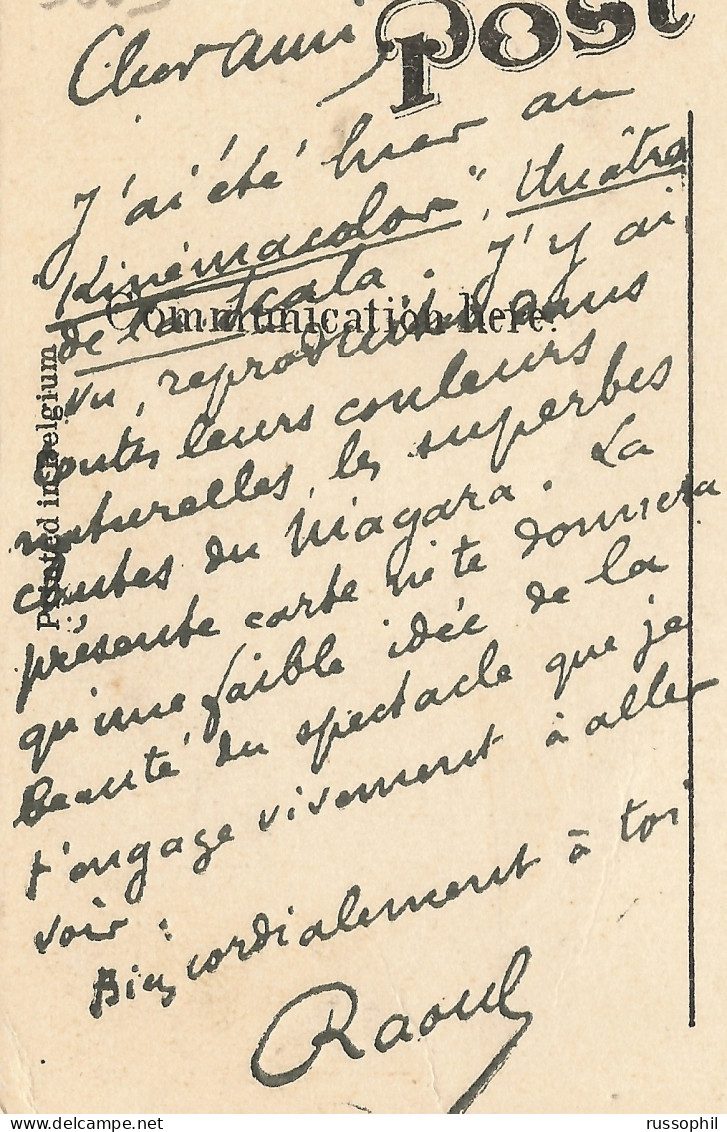 Post
Cher ami
J'ai été hier au
"Kinémacolor", théâtre
de la Scala. J'y ai
vu, reproduites dans
toutes leurs couleurs
naturelles, les superbes
chutes du Niagara. La
présente carte ne te donnera
qu'une faible idée de la
beauté du spectacle que je
t'engage vivement à aller
voir.
Bien cordialement à toi
Raoul
Communication here.
Printed in Belgium
russophil
www.delcampe.net